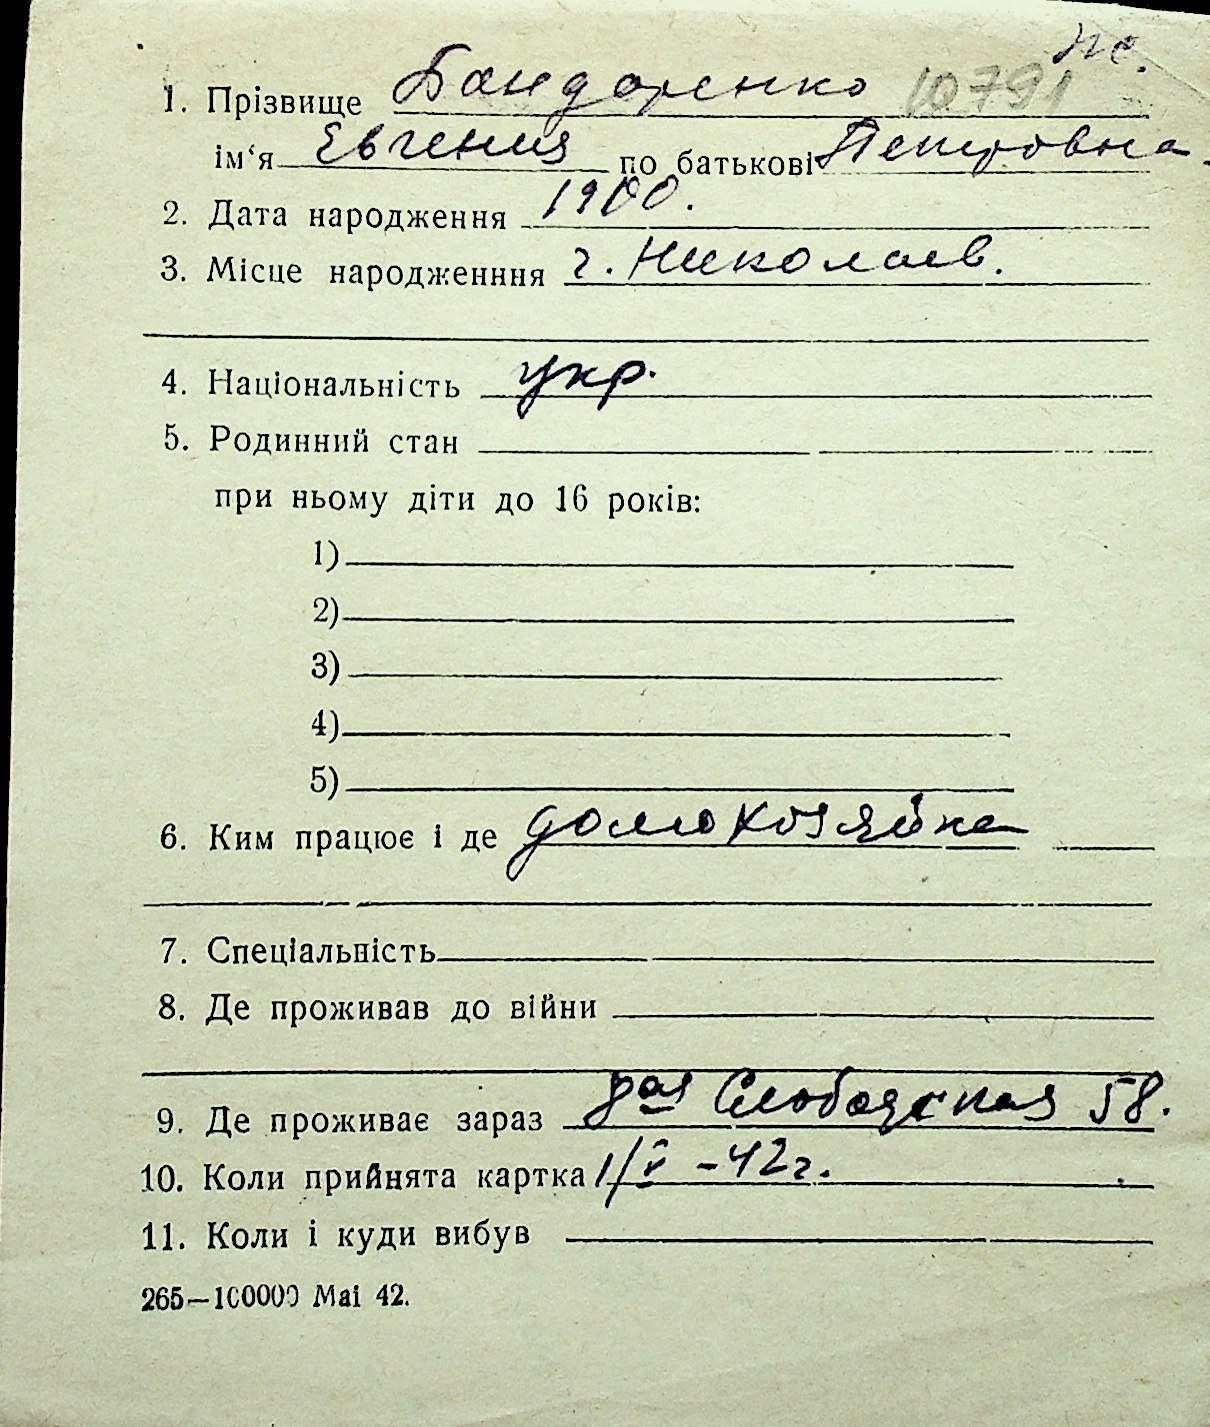 же.
1. Прізвище Бондаренко 10791
ім‘я Евгения по батькові Петровна
2. Дата народження 1900.
3. Місце народженння г. Николаев.
4. Національність укр.
5. Родинний стан
при ньому діти до 16 років:
1)
2)
3)
4)
5)
6. Ким працює і де домохозяйка
7. Спеціальність
8. Де проживав до війни
9. Де проживає зараз 8ая Слободская 58.
10. Коли прийнята картка 1/V – 42 г.
11. Коли і куди вибув
265—100000 Mai 42.